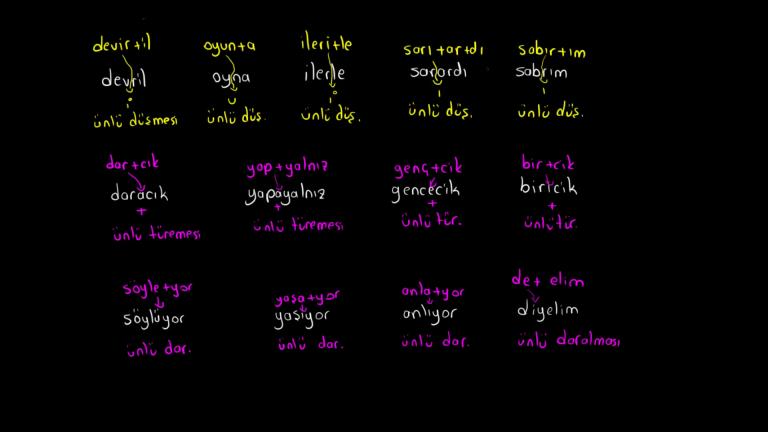 devir+il oyun+a ileri+le sarı+ar+dı sabır+ım
devril oyna ilerle sarardı sabrım
i u i ı ı
ünlü düşmesi ünlü düş. ünlü düş. ünlü düş. ünlü düş.
dar+cık yap+yalnız genç+cik bir+cik
daracık yapayalnız gencecik biricik
+ + + +
ünlü türemesi ünlü türemesi ünlü tür. ünlü tür.
söyle+yor yaşa+yor anla+yor de+ elim
söylüyor yaşıyor anlıyor diyelim
ünlü dar. ünlü dar. ünlü dar. ünlü daralması